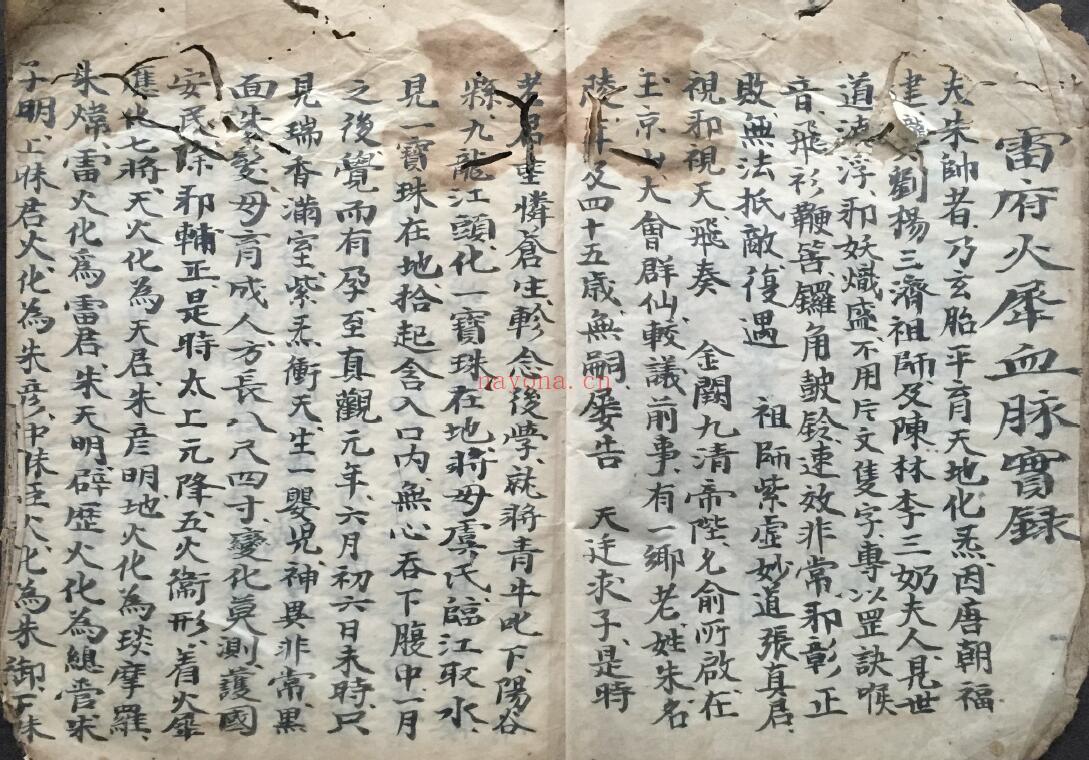 雷府火犀血脉實録
夫朱帥者、乃玄胎平育天地化炁、因唐朝福
建 劉楊三濟祖師、及陳林李三奶夫人、見世
道澆浮、邪妖熾盛、不用片文隻字、專以罡訣喉
音、飛衫鞭笤、鑼角皷鈴、速效非常、邪彰正
敗、無法抵敵、復遇 祖師紫虚妙道張真君、
視邪視天飛奏 金闕九清帝陛、允俞所啟、在
玉京山大會群仙、較議前事、有一鄉老、姓朱、名
陵、年及四十五歲、無嗣、屡告 天迂求子、是時
老君 憐蒼生、軫念後學、就將青牛叱下陽谷
縣、九龍江頭、化一寶珠在地、將母虞氏臨江取水、
見一寶珠在地、拾起含入口内、無心吞下腹中、一月
之後、覺而有孕、至真觀元年、六月初六日未時、只
見瑞香滿室、紫炁衝天、生一嬰兒、神異非常、黑
面朱髮、母育成人、方長八尺四寸、變化莫測、護國
安民、除邪輔正、是時太上元降五火衞形、着火犀
應化七將、天火化為天君、朱彦明、地火化為琰摩羅、
朱煒、雷火化為雷君、朱天明、辟歷火化為總管、朱
子明、上昧君火化為朱彦、中昧臣火化為朱御、下昧
nayona.cn